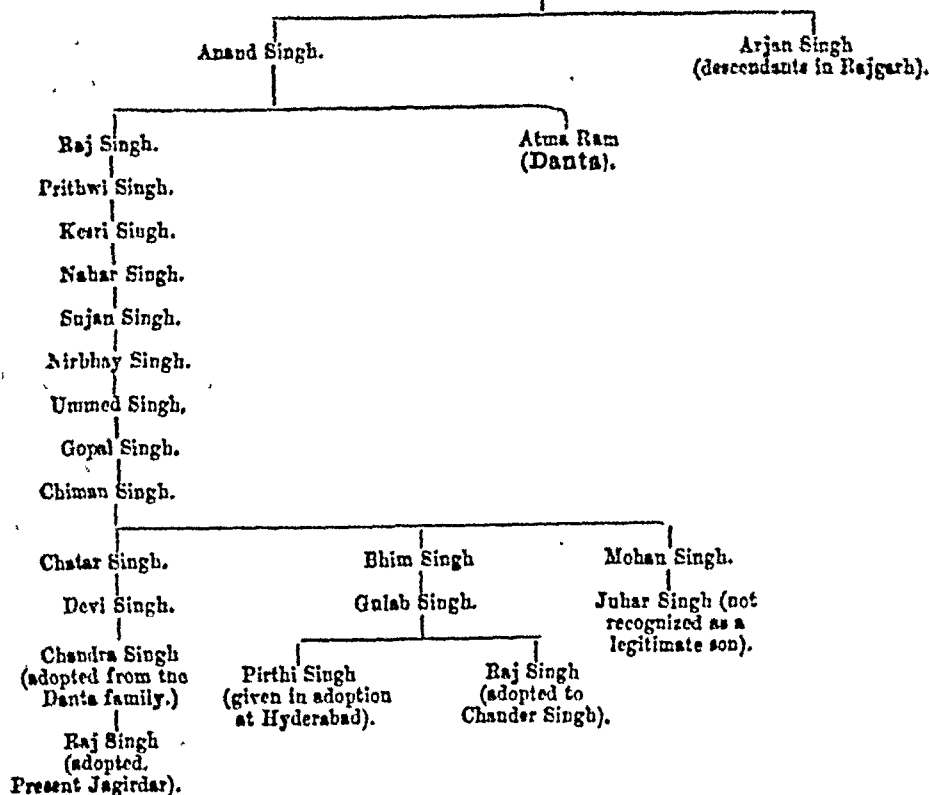 Anand Singh.
Arjan Singh
(descendants in Rajgarh).
Raj Singh.
Atma Ram
(Danta).
Prithwi Singh.
Kesri Singh.
Nahar Singh.
Sujan Singh.
Nirbhay Singh.
Ummed Singh,
Gopal Singh.
Chiman Singh.
Chatar Singh.
Bhim Singh
Mohan Singh.
Devi Singh.
Gulab Singh.
Juhar Singh (not
recognized as a
legitimate son).
Chandra Singh
(adopted from the
Danta family.)
Pirthi Singh
(given in adoption
at Hyderabad).
Raj Singh
(adopted to
Chander Singh).
Raj Singh
(adopted.
Present Jagirdar).